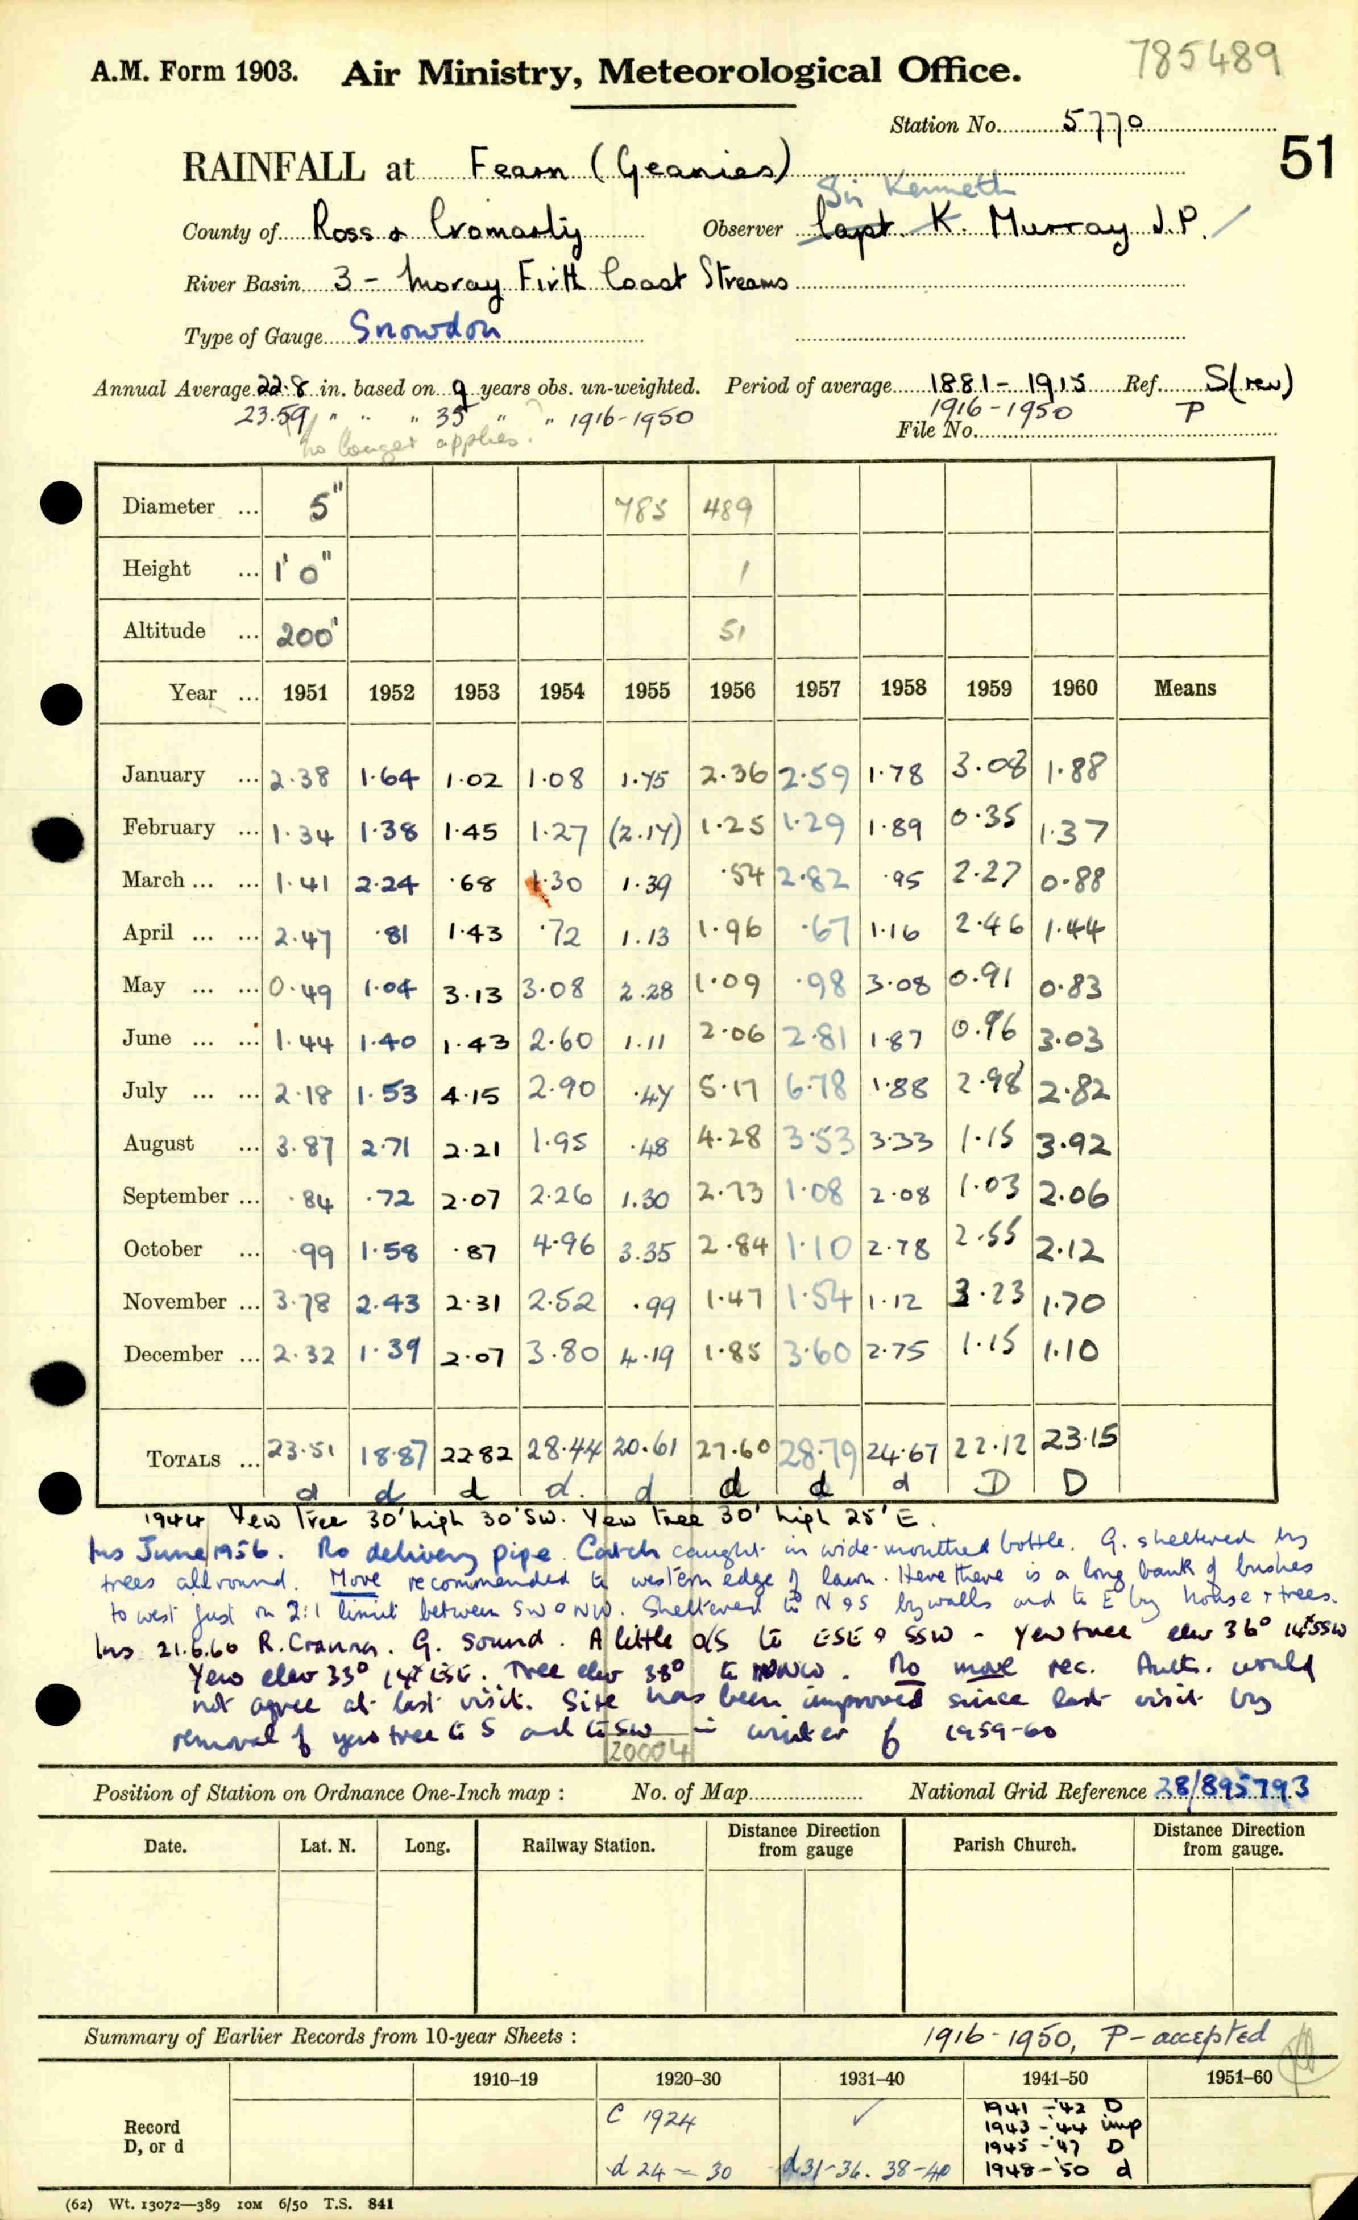 785489
A.M. Form 1903. Air Ministry, Meteorological Office.
Station No. 5770
51
RAINFALL at Fearn (Geanies)
Sir Kenneth
County of Ross & Cromarty Observer Capt. K. Murray J.P.
River Basin 3 - Moray Firth Coast Streams
Type of Gauge Snowdon
Annual Average 22.8 in. based on 9 years obs. un-weighted. Period of average 1881-1915 Ref. S(rev)
23.59 " " " 35 " " 1916-1950 1916-1950 P
no longer applies. File No.
Diameter ... 5" 785 489
Height ... 1' 0" 1
Altitude ... 200' 51
Year ... 1951 1952 1953 1954 1955 1956 1957 1958 1959 1960 Means
January ... 2.38 1.64 1.02 1.08 1.75 2.36 2.59 1.78 3.08 1.88
February ... 1.34 1.38 1.45 1.27 (2.17) 1.25 1.29 1.89 0.35 1.37
March ... ... 1.41 2.24 .68 1.30 1.39 .54 2.82 .95 2.27 0.88
April ... ... 2.47 .81 1.43 .72 1.13 1.96 .67 1.16 2.46 1.44
May ... ... 0.49 1.04 3.13 3.08 2.28 1.09 .98 3.08 0.91 0.83
June ... ... 1.44 1.40 1.43 2.60 1.11 2.06 2.81 1.87 0.96 3.03
July ... ... 2.18 1.53 4.15 2.90 .47 5.17 6.78 1.88 2.98 2.82
August ... 3.87 2.71 2.21 1.95 .48 4.28 3.53 3.33 1.15 3.92
September ... .84 .72 2.07 2.26 1.30 2.73 1.08 2.08 1.03 2.06
October ... .99 1.58 .87 4.96 3.35 2.84 1.10 2.78 2.55 2.12
November ... 3.78 2.43 2.31 2.52 .99 1.47 1.54 1.12 3.23 1.70
December ... 2.32 1.39 2.07 3.80 4.19 1.85 3.60 2.75 1.15 1.10
TOTALS ... 23.51 18.87 22.82 28.44 20.61 27.60 28.79 24.67 22.12 23.15
d d d d. d d d d D D
1944 Yew Tree 30' high 30' SW. Yew Tree 30' high 25' E.
Ins June 1956. No delivery pipe. Catch caught in wide-mouthed bottle. G. sheltered by
trees all round. Move recommended to western edge of lawn. Here there is a long bank of bushes
to west just on 2:1 limit between SW & NW. Sheltered to N & S by walls and to E by house & trees.
Ins 21.6.60 R. Cranna. G. sound. A little o/s to ESE & SSW - Yew tree elev 36° SSW
Yew elev 33° ESE. Tree elev 38° to NNW. No move rec. Auth. would
not agree at last visit. Site has been improved since last visit by
removal of yew tree to S and to SW in winter of 1959-60
20004
Position of Station on Ordnance One-Inch map : No. of Map National Grid Reference 28/895793
Date. Lat. N. Long. Railway Station. Distance Direction from gauge Parish Church. Distance Direction from gauge.
Summary of Earlier Records from 10-year Sheets : 1916-1950, P-accepted
1910–19 1920–30 1931–40 1941–50 1951–60
Record D, or d
C 1924 ✓
d 24 - 30 d31-36. 38-40
1941 - '42 D
1943 - '44 imp
1945 - '47 D
1948 - '50 d
(62) Wt. 13072—389 10M 6/50 T.S. 841